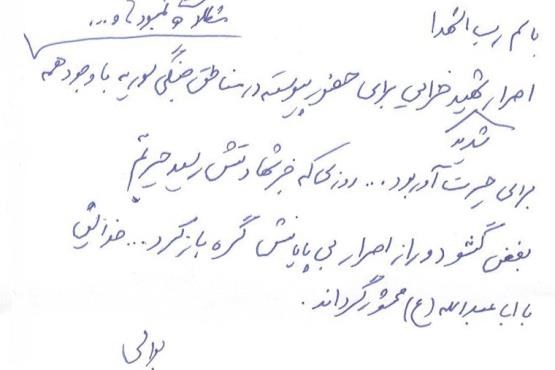 باسم رب الشهدا
مشکلات و کمبودها و...
اصرار شهید خزایی برای حضور پیوسته در مناطق جنگی سوریه با وجود همه
شدید
برای حیرت آور بود... روزی که خبر شهادتش رسید حیرتم
بغض گشود و راز اصرار بی پایانش گره باز کرد...
با اباعبدالله (ع) محشور گرداند.